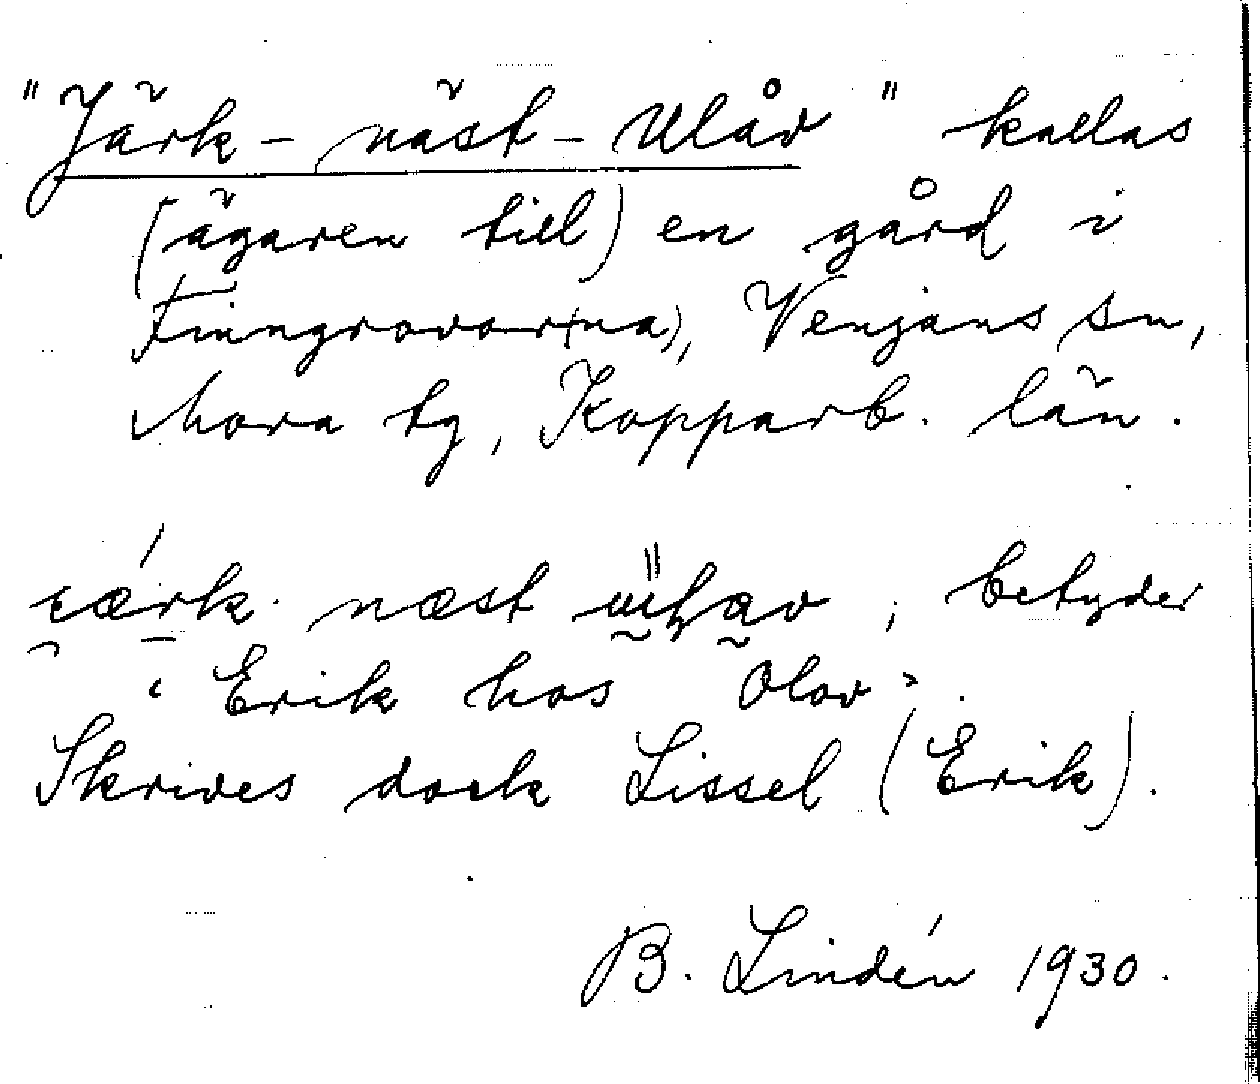 "Järk-näst-Ulåv" kallas
(ägaren till) en gård i
Finngrovor(na), Venjans sn,
Mora tg, Kopparb. län.
næst ; betyder
‹Erik hos Olov›.
Skrives dock Lissel (Erik).
B. Lindén 1930.